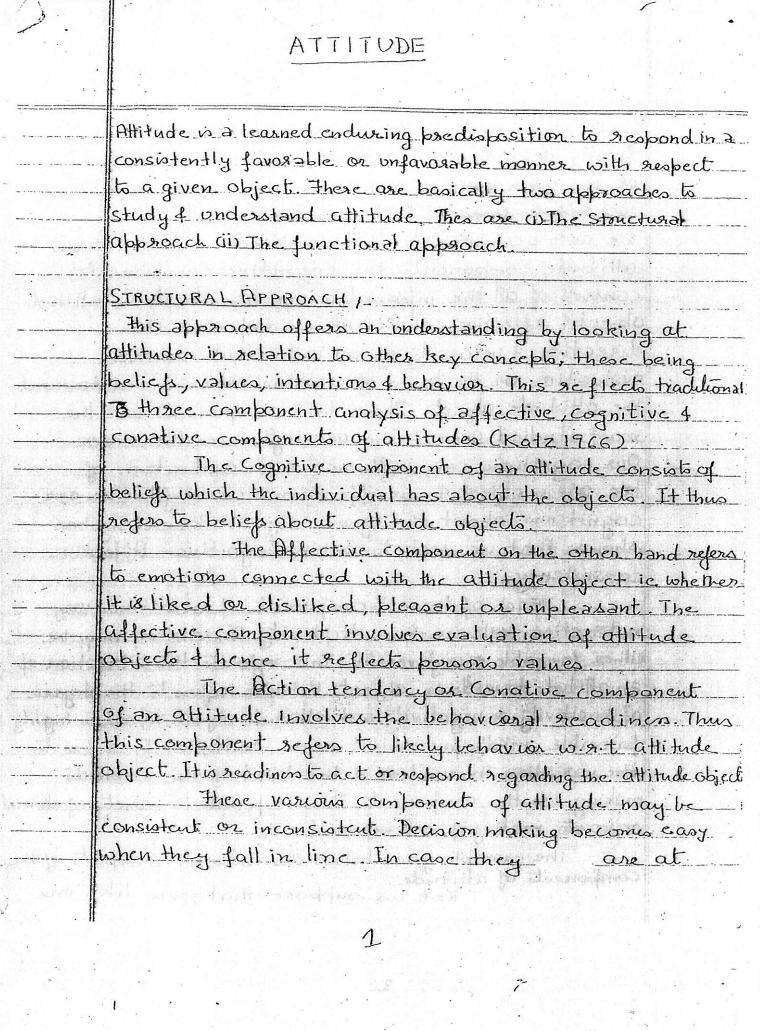 ATTITUDE
Attitude is a learned enduring predisposition to respond in a
consistently favorable or unfavorable manner with respect
to a given object. There are basically two approaches to
study & understand attitude. Thes are (i) The Structural
approach (ii) The functional approach.
STRUCTURAL APPROACH ;-
This approach offers an understanding by looking at
attitudes in relation to other key concepts; these being
beliefs, values, intentions & behavior. This reflects traditional
three component analysis of affective, cognitive &
conative components of attitudes (Katz 1966).
The Cognitive component of an attitude consists of
beliefs which the individual has about the objects. It thus
refers to beliefs about attitude objects.
The Affective component on the other hand refers
to emotions connected with the attitude object ie whether
it is liked or disliked, pleasant or unpleasant. The
affective component involves evaluation of attitude
objects & hence it reflects person's values.
The Action tendency or Conative component
of an attitude involves the behavioral readiness. Thus
this component refers to likely behavior w.r.t attitude
object. It is readiness to act or respond regarding the attitude object
These various components of attitude may be
consistent or inconsistent. Decision making becomes easy
when they fall in line. In case they are at
1